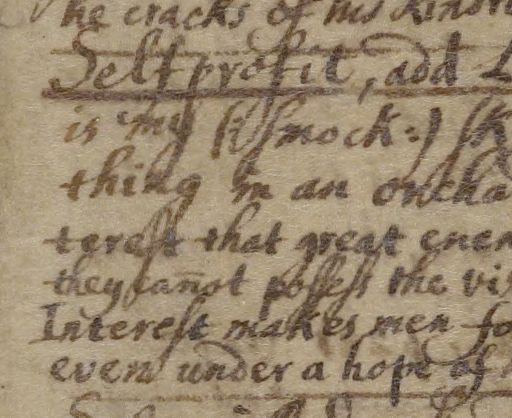 he cracks of his kindn
Selfprofit, add
is my smock:) (K
thing in an encha
terest that great enem
they cañot possess the vi
Interest makes men fo
even under a hope of